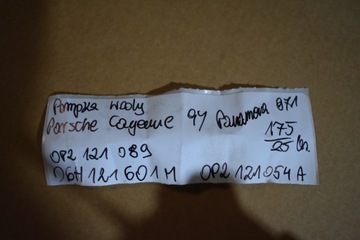 Pompka wody
Porsche Cayenne 9Y Panamera 971
175
25
0P2 121 089
06H 121 601 M 0P2 121 054 A